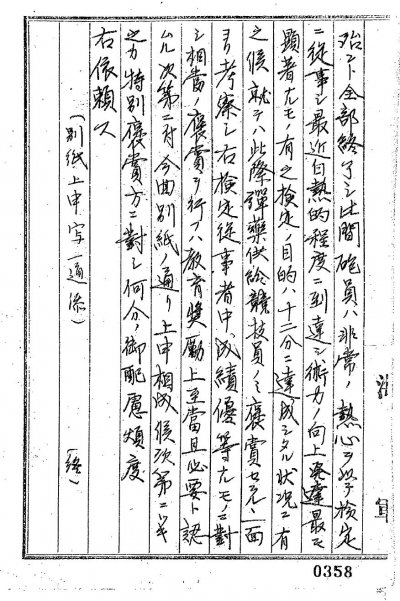 殆ント全部終了シ此間砲員ハ非常ノ熱心ヲ以テ検定
ニ従事シ最近白熱的程度ニ到達シ術力ノ向上発達最モ
顕著ナルモノ有之検定ノ目的ハ十二分ニ達成シタル状況ニ有
之候就テハ此際弾薬供給競技員ノミ褒賞セラレ一面
ヨリ考察シ右検定従事者中成績優等ナルモノニ対
シ相当ノ褒賞ヲ行フハ教育奨励上至当且必要ト認
ムル次第ニ付今回別紙ノ通リ上申相成候次第ニ
之カ特別褒賞方ニ対シ何分ノ御配慮煩度
右依頼ス
(別紙上申写一通添)
(終)
海
0358